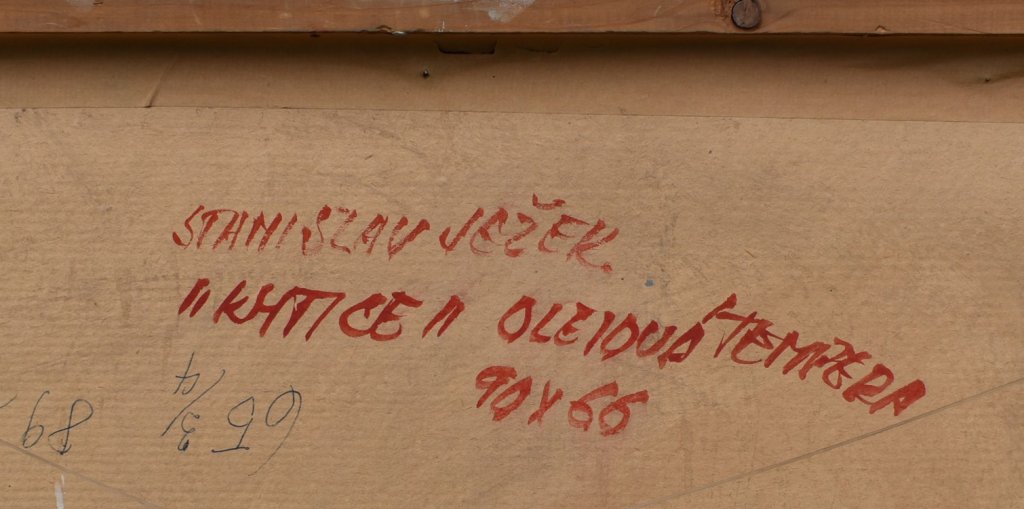 STANISLAV JEŽEK.
"KYTICE" OLEJOVÁ TEMPERA
90X66
65 3/4
89